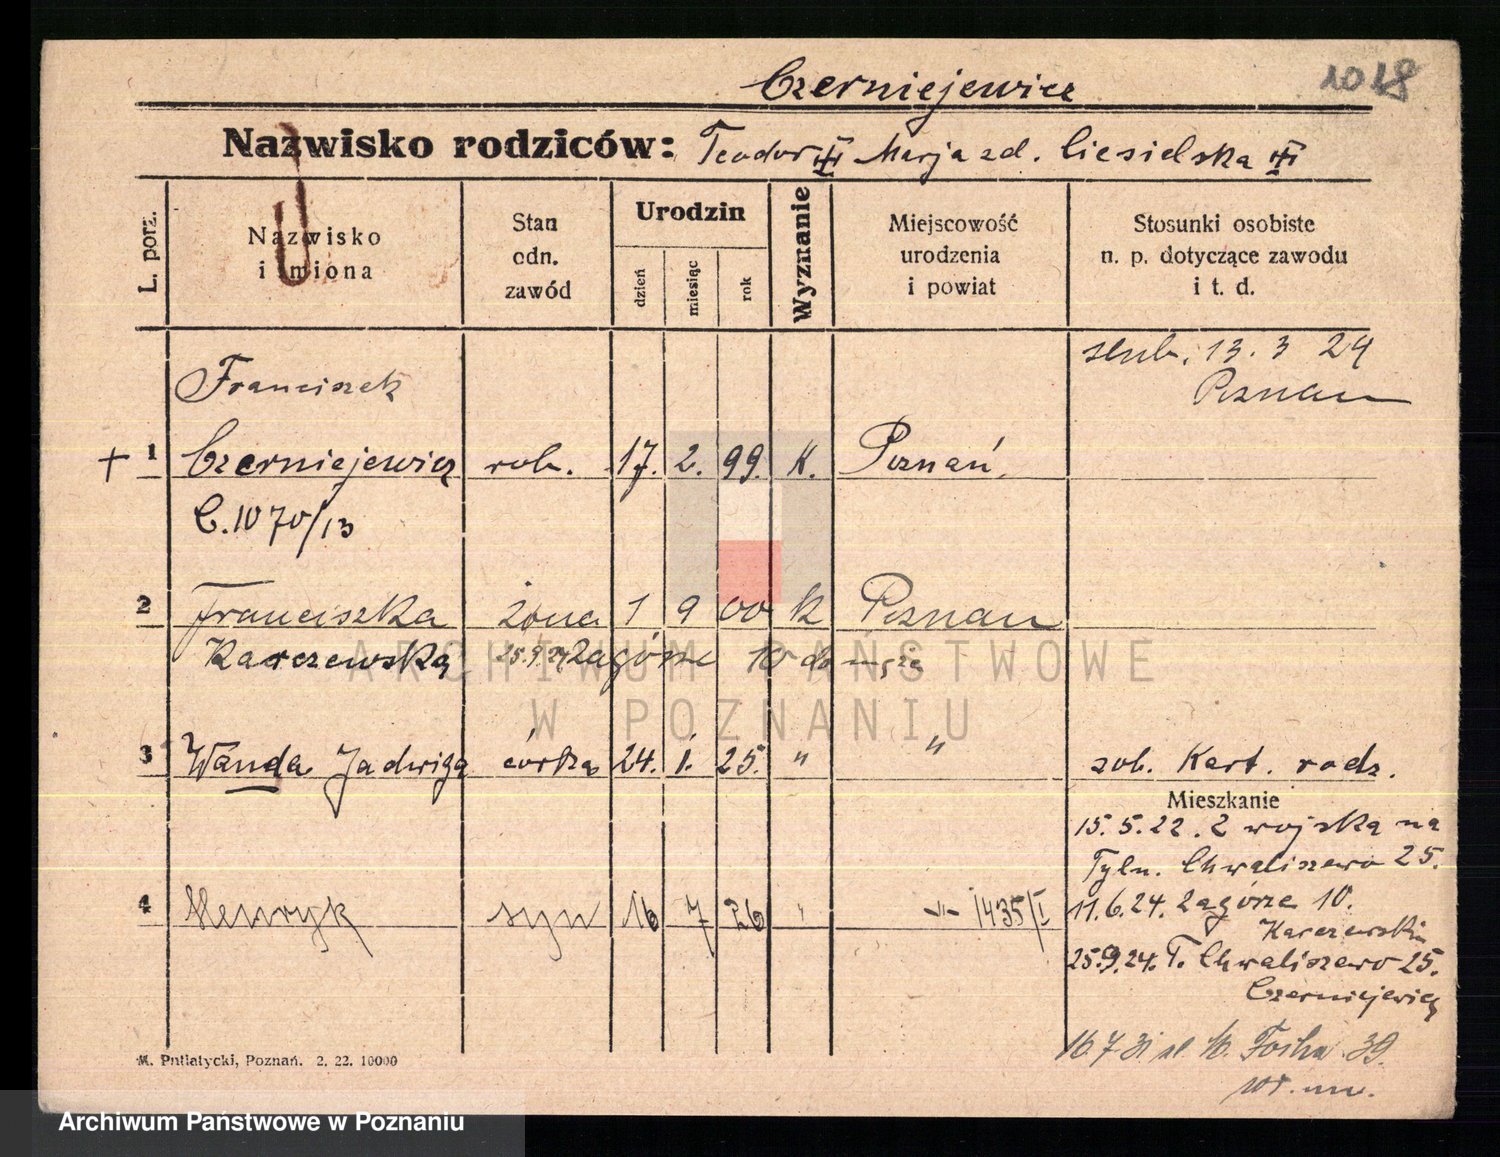 1018
Czerniejewicz
Nazwisko rodziców: Teodor Marja zd. Ciesielska
L. porz.
Nazwisko i imiona
Stan odn. zawód
Urodzin
dzień
miesiąc
rok
Wyznanie
Miejscowość urodzenia i powiat
Stosunki osobiste n. p. dotyczące zawodu i t. d.
ślub. 13. 3 24
Poznan
Franciszek
+ 1 Czerniejewicz rob. 17. 2. 99. K. Poznań.
C.1070/13
2 Franciszka żona 1 9 00 k Poznan
Karczewska 25.9.24 Zagórze 10 do męża
3 Wanda Jadwiga córka 24. 1. 25. " " zob. Kart. rodz.
Mieszkanie
15. 5. 22. z wojska na
Tyln. Chwaliszewo 25.
4 Henryk syn 16 7 26 " -"- 1435/I
11. 6. 24. Zagórze 10.
Karczewski
25.9.24. T. Chwaliszewo 25.
Czerniejewicz
16.7.31 Focha 39.
M. Putiatycki, Poznań. 2. 22. 10000
ARCHIWUM PAŃSTWOWE
W POZNANIU
Archiwum Państwowe w Poznaniu